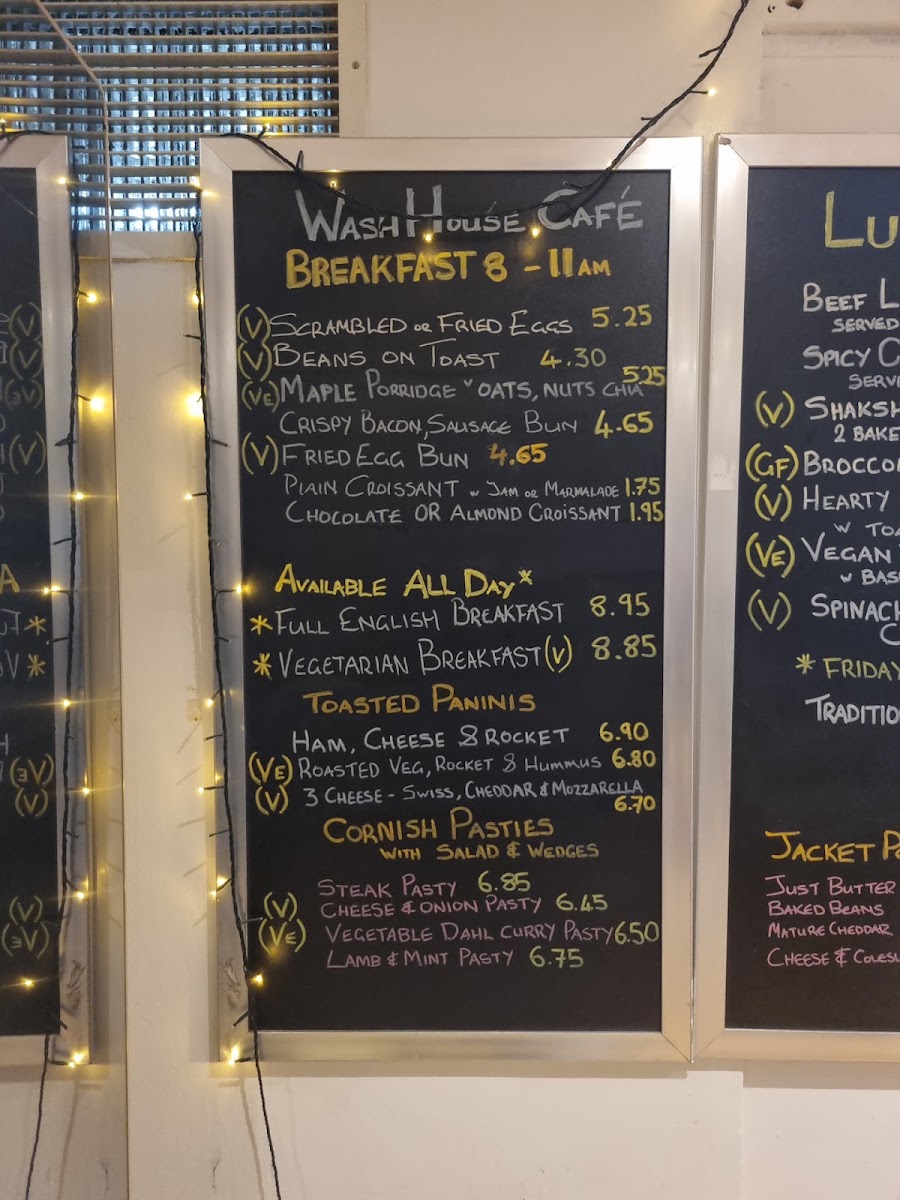 WASH HOUSE CAFÉ
BREAKFAST 8 - 11 AM
(V) SCRAMBLED OR FRIED EGGS 5.25
(V) BEANS ON TOAST 4.30
(VE) MAPLE PORRIDGE W OATS, NUTS CHIA 5.25
CRISPY BACON, SAUSAGE BUN 4.65
(V) FRIED EGG BUN 4.65
PLAIN CROISSANT W JAM OR MARMALADE 1.75
CHOCOLATE OR ALMOND CROISSANT 1.95
AVAILABLE ALL DAY*
*FULL ENGLISH BREAKFAST 8.95
*VEGETARIAN BREAKFAST (V) 8.85
TOASTED PANINIS
HAM, CHEESE & ROCKET 6.90
(VE) ROASTED VEG, ROCKET & HUMMUS 6.80
(V) 3 CHEESE - SWISS, CHEDDAR & MOZZARELLA
6.70
CORNISH PASTIES
WITH SALAD & WEDGES
STEAK PASTY 6.85
(V) CHEESE & ONION PASTY 6.45
(VE) VEGETABLE DAHL CURRY PASTY 6.50
LAMB & MINT PASTY 6.75
LU
BEEF L
SERVED
SPICY C
SERVE
(V) SHAKSH
2 BAKE
(GF) BROCCOL
(V) HEARTY
W TOA
(VE) VEGAN
W BAS
(V) SPINACH
C
* FRIDAY
TRADITIO
JACKET PO
JUST BUTTER
BAKED BEANS
MATURE CHEDDAR
CHEESE & COLESL